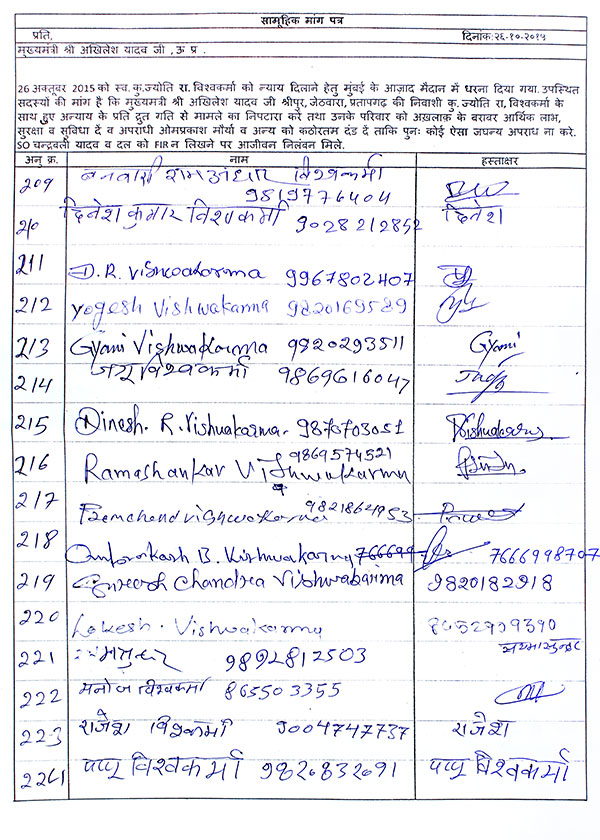 सामूहिक मांग पत्र
प्रति, दिनांक:२६-१०-२०१५
मुख्यमंत्री श्री अखिलेश यादव जी ,ऊ प्र .
26 अक्तूबर 2015 को स्व. कु.ज्योति रा. विश्वकर्मा को न्याय दिलाने हेतु मुंबई के आज़ाद मैदान में धरना दिया गया. उपस्थित
सदस्यों की मांग है कि मुख्यमंत्री श्री अखिलेश यादव जी श्रीपुर, जेठवारा, प्रतापगढ़ की निवाशी कु. ज्योति रा, विश्वकर्मा के
साथ हुए अन्याय के प्रति दुत गति से मामले का निपटारा करे तथा उनके परिवार को अख़लाक़ के बरावर आर्थिक लाभ,
सुरक्षा व सुविधा दें व अपराधी ओमप्रकाश मौर्या व अन्य को कठोरतम दंड दें ताकि पुनः कोई ऐसा जघन्य अपराध ना करे.
SO चन्द्रवली यादव व दल को FIR न लिखने पर आजीवन निलंबन मिले.
अनु क्र. नाम हस्ताक्षर
209 बनवारी विश्वकर्मा
9819776404
210 दिनेश कुमार विश्वकर्मा 9028212852 दिनेश
211 D.R. Vishwakarma 9967802407
212 Yogesh Vishwakarma 9820169589
213 Gyani Vishwakarma 9920293511 Gyani
214 जय विश्वकर्मा 9869616047
215 Dinesh. R. Vishwakarma. 9870703051 Vishwakarma
216 Ramashankar Vishwakarma 9869574521
217 Premchand Vishwakarma 9821864953
218 Omprakash B. Vishwakarma 7666998707
219 Suresh Chandra Vishwakarma 9820182918
220 Lokesh. Vishwakarma 8652909390
221 9892812503
222 मनोज विश्वकर्मा 865503355
223 राजेश विश्वकर्मा 9004747737 राजेश
224 पप्पू विश्वकर्मा 9820832691 पप्पू विश्वकर्मा